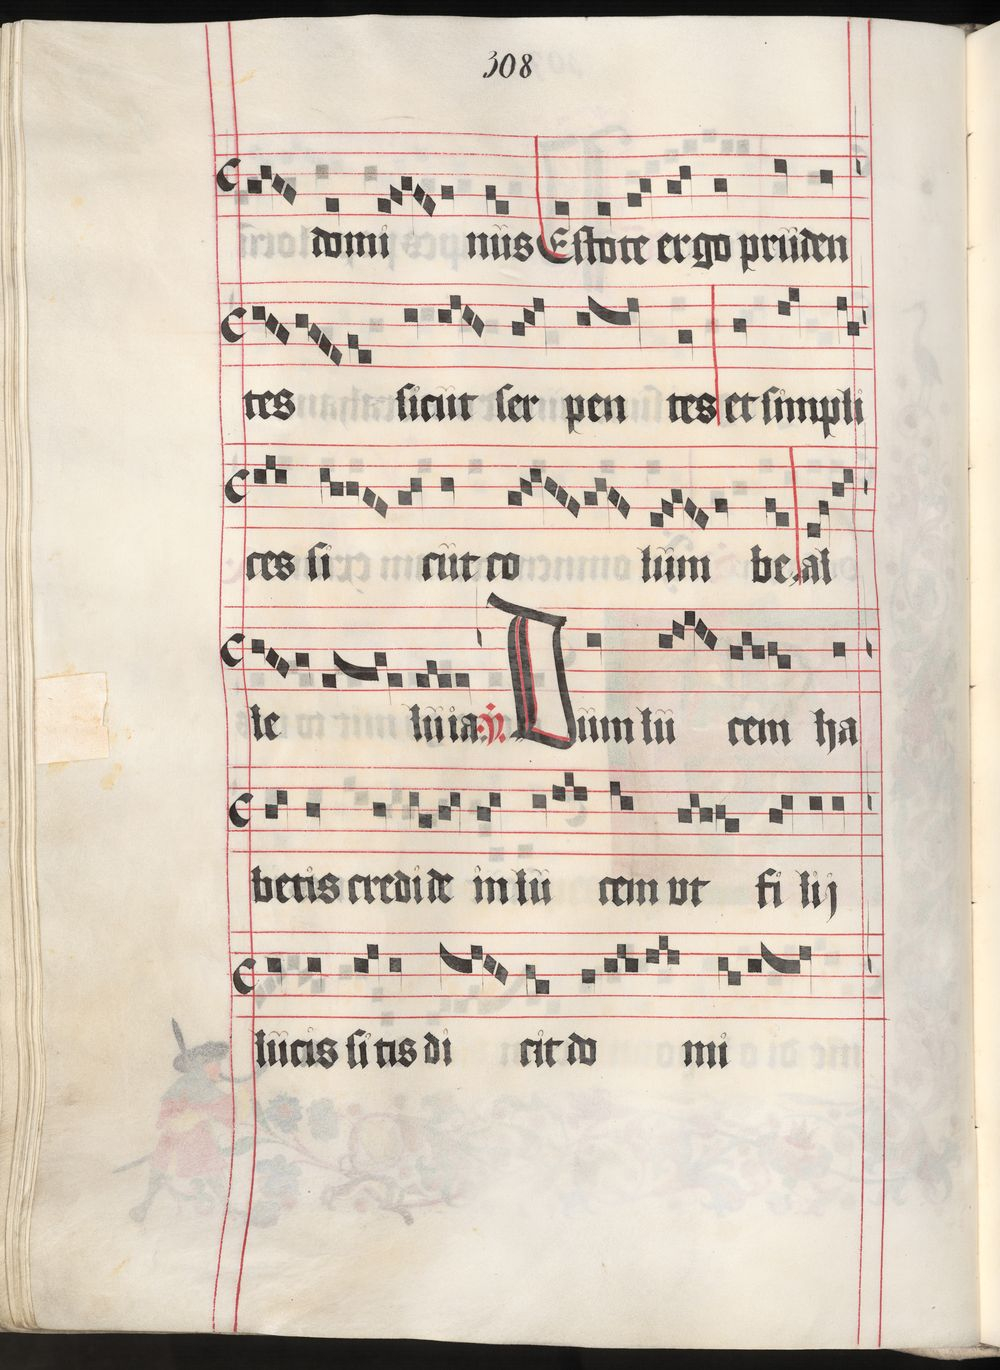 308
domi nus Estote ergo pruden
tes sicut ser pen tes et simpli
ces si cut co lum be, al
le luia. V. Dum lu cem ha
betis credi te in lu cem vt fi lij
lucis si tis di cit do mi